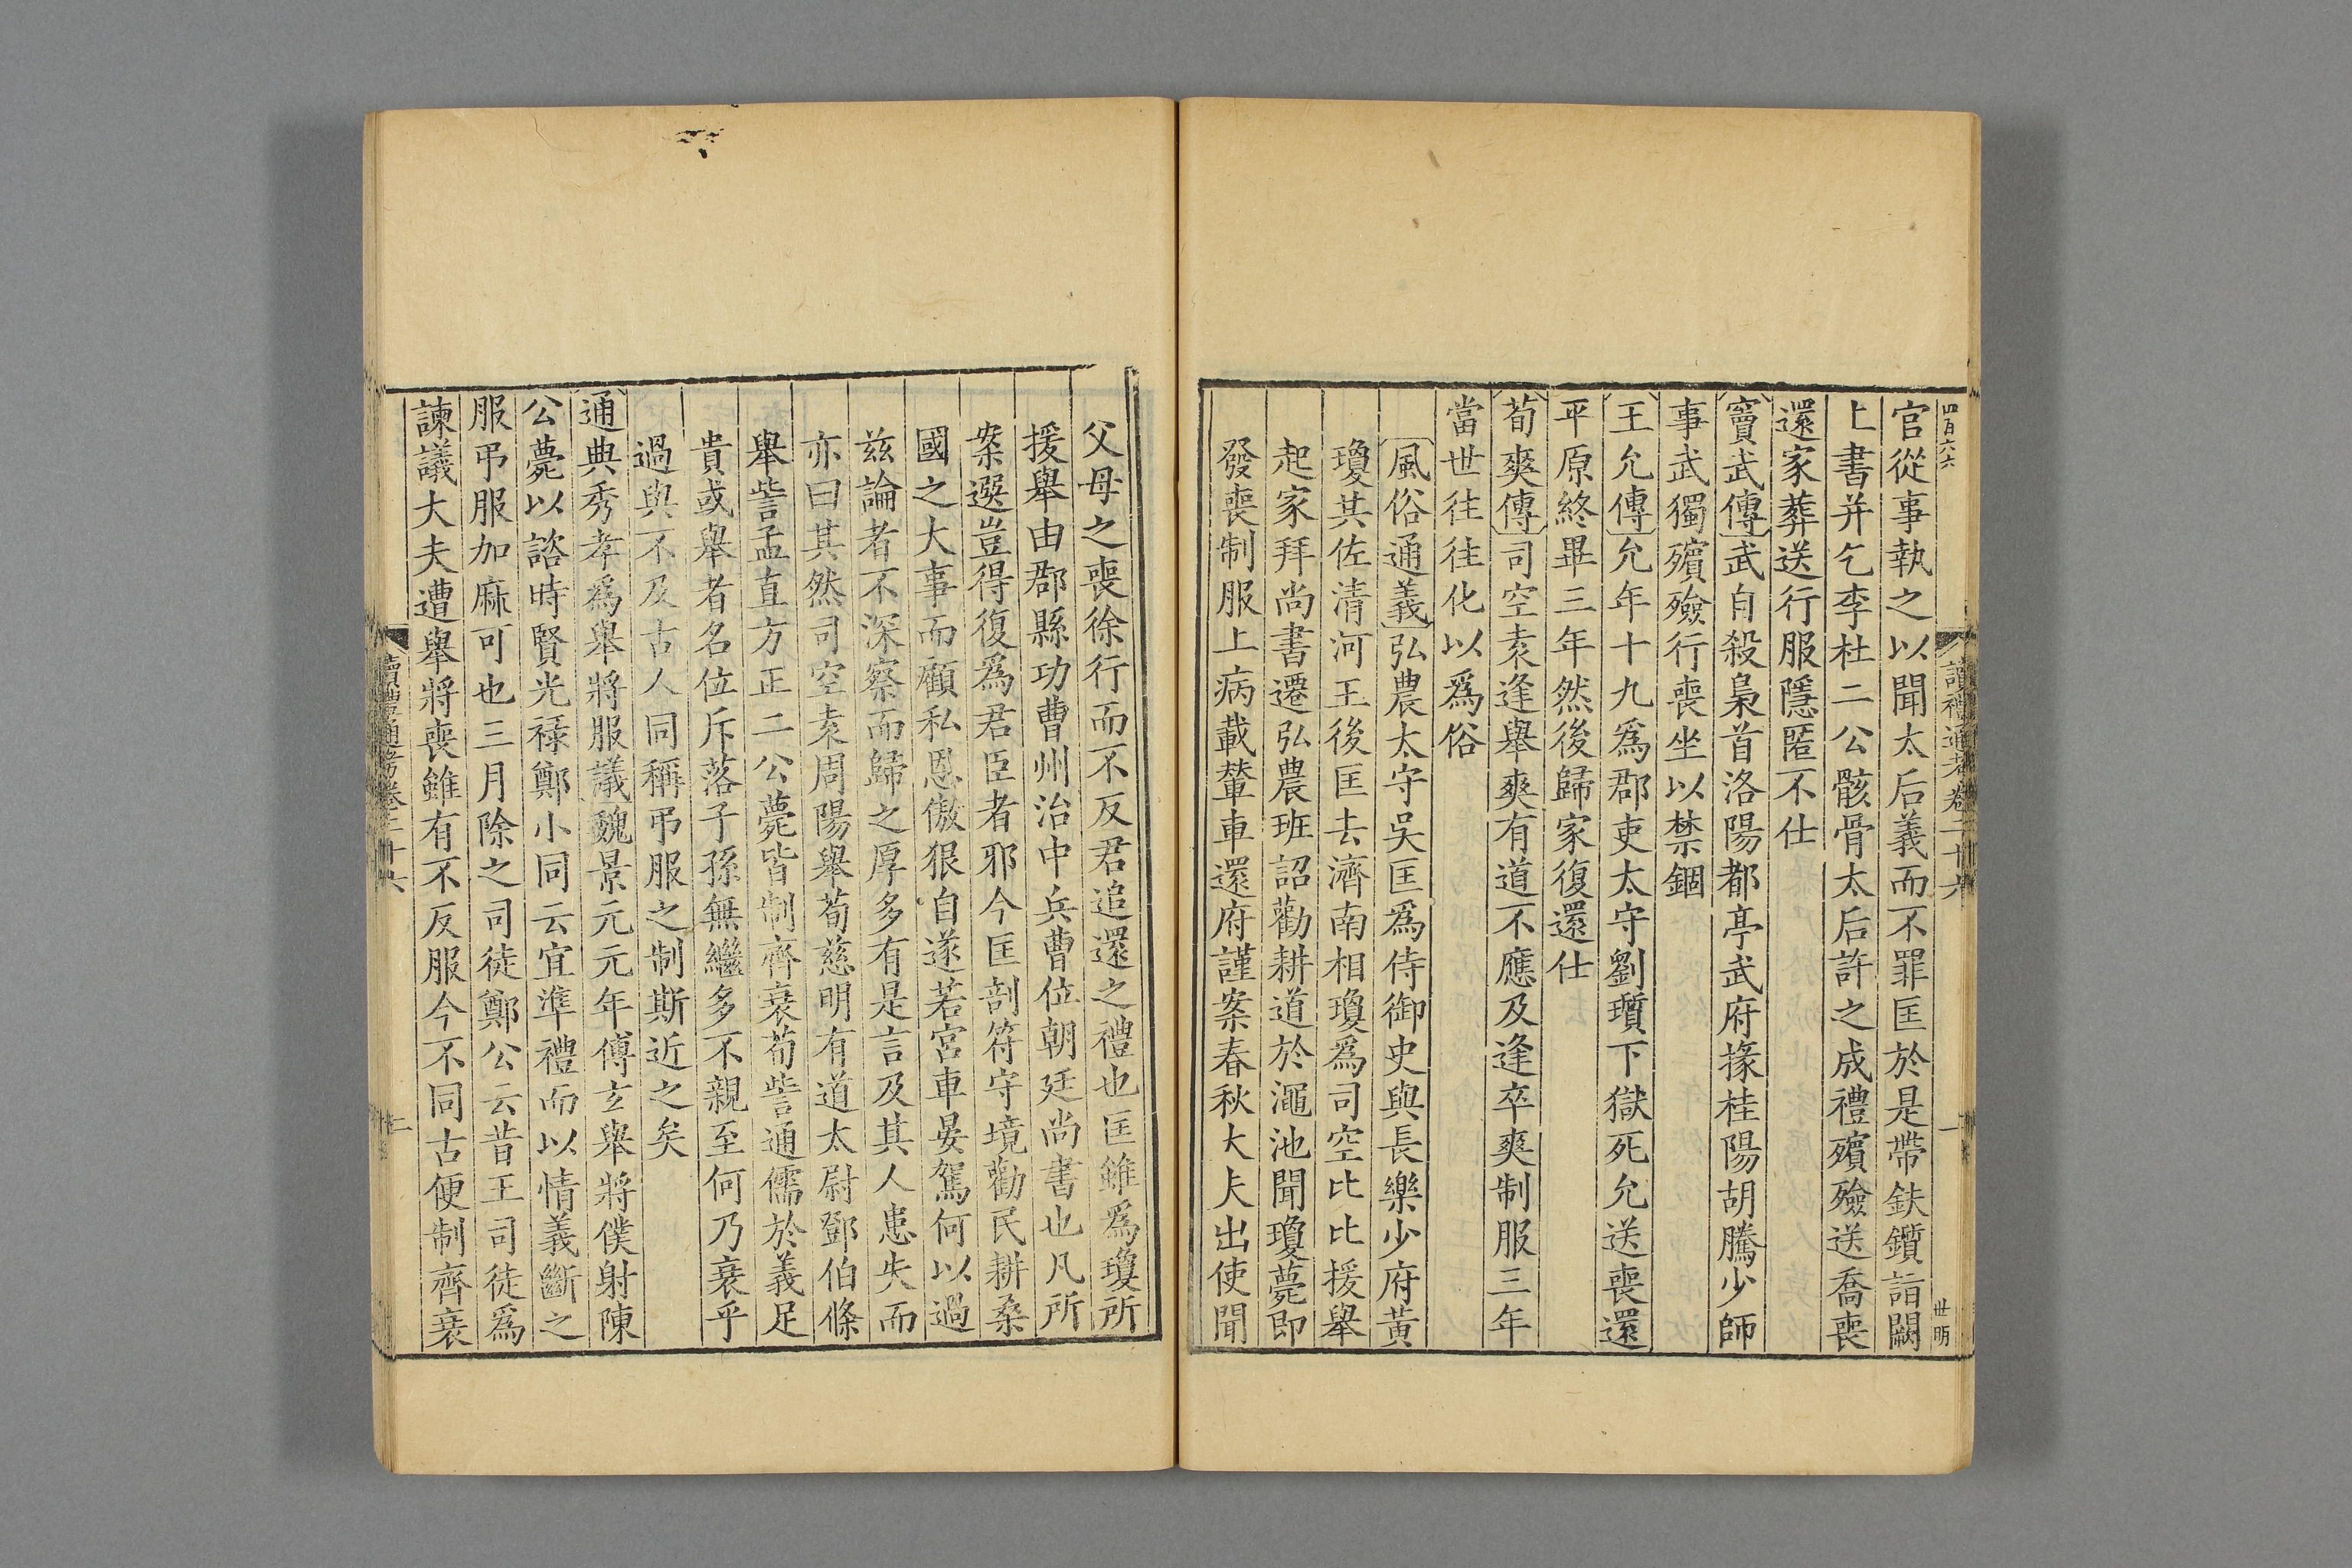 四百六六
讀禮通考卷二十六
一
世明
官從事執之以聞太后義而不罪匡於是帶鈇鑕詣闕
上書并乞李杜二公骸骨太后許之成禮殯殮送喬喪
還家葬送行服隱匿不仕
竇武傳武自殺梟首洛陽都亭武府掾桂陽胡騰少師
事武獨殯殮行喪坐以禁錮
王允傳允年十九爲郡吏太守劉瓆下獄死允送喪還
平原終畢三年然後歸家復還仕
荀爽傳司空袁逢舉爽有道不應及逢卒爽制服三年
當世往往化以爲俗
風俗通義弘農太守吳匡爲侍御史與長樂少府黃
瓊其佐清河王後匡去濟南相瓊爲司空比比援舉
起家拜尚書遷弘農班詔勸耕道於澠池聞瓊薨即
發喪制服上病載輦車還府謹案春秋大夫出使聞
父母之喪徐行而不反君追還之禮也匡雖爲瓊所
援舉由郡縣功曹州治中兵曹位朝廷尚書也凡所
案選豈得復爲君臣者邪今匡剖符守境勸民耕桑
國之大事而顧私恩傲狠自遂若宮車晏駕何以過
茲論者不深察而歸之厚多有是言及其人患失而
亦曰其然司空袁周陽舉荀慈明有道太尉鄧伯條
舉訾孟直方正二公薨皆制齊衰荀訾通儒於義足
貴或舉者名位斥落子孫無繼多不親至何乃衰乎
過與不及古人同稱弔服之制斯近之矣
通典秀孝爲舉將服議魏景元元年傅玄舉將僕射陳
公薨以諮時賢光祿鄭小同云宜準禮而以情義斷之
服弔服加麻可也三月除之司徒鄭公云昔王司徒爲
諫議大夫遭舉將喪雖有不反服今不同古便制齊衰
讀禮通考卷二十六
二